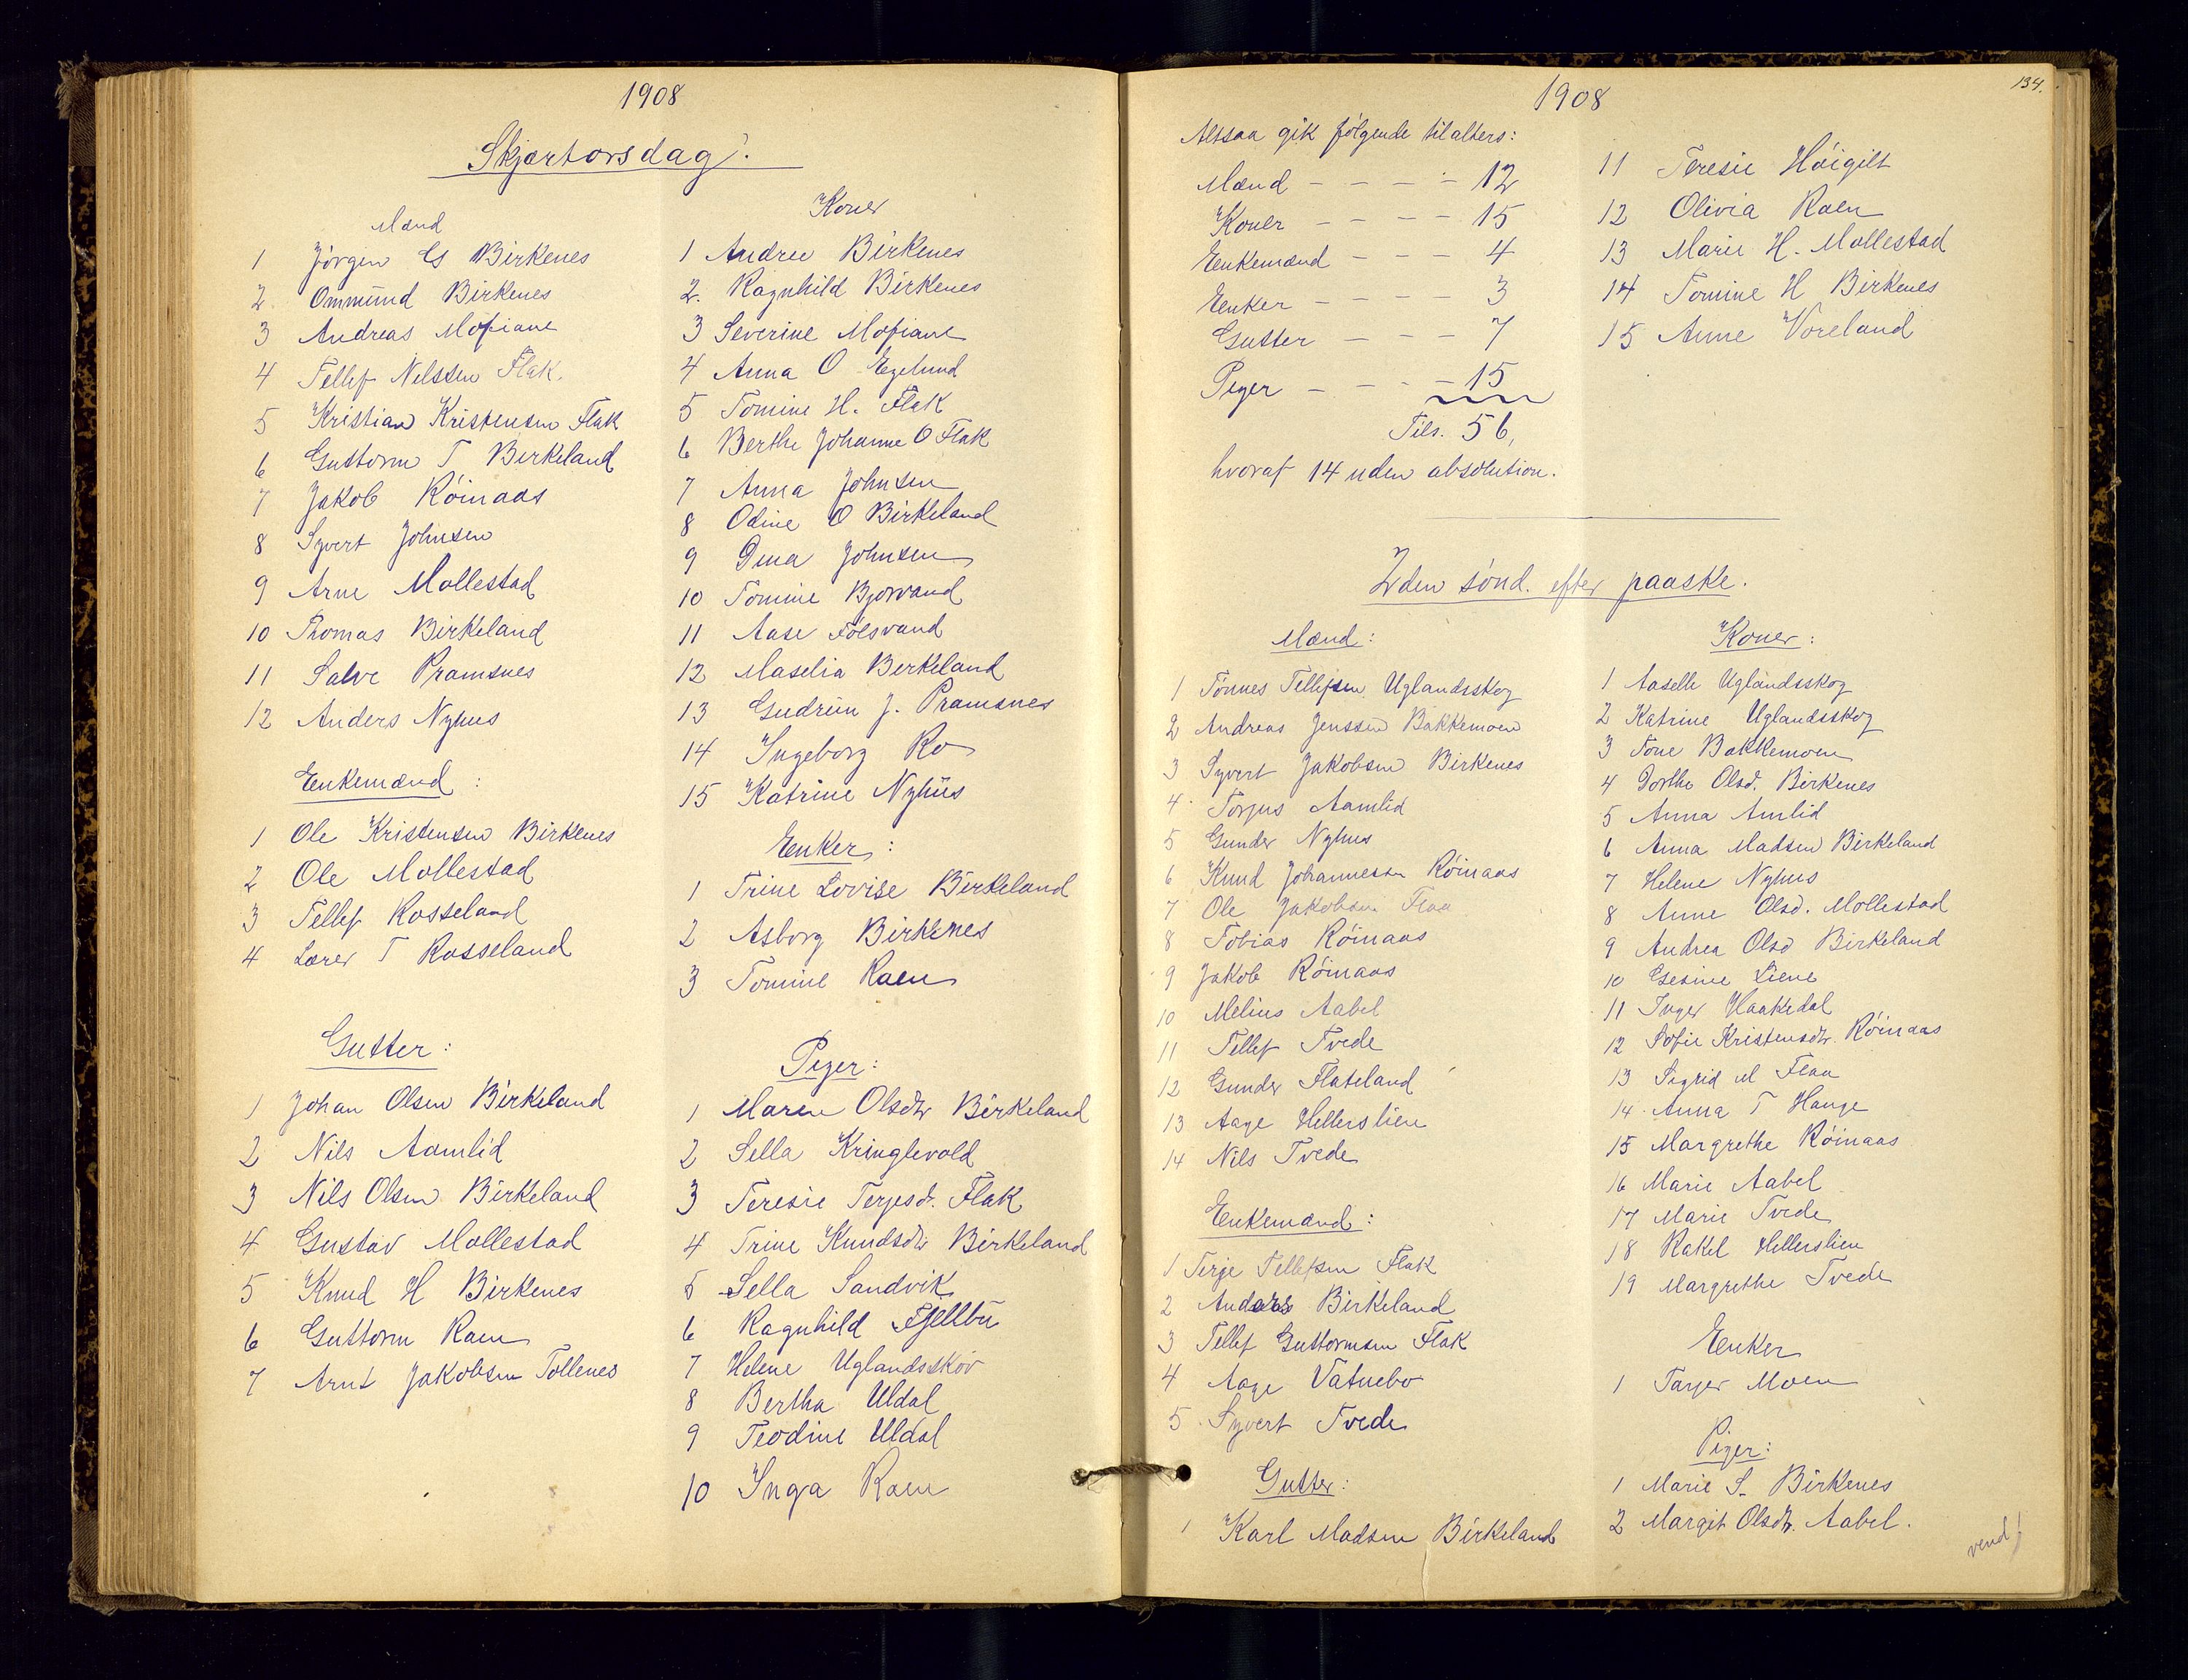 1908
Skjærtorsdag.
Mænd
1 Jörgen Gs Birkenes
2 Ommund Birkenes
3 Andreas Mosfiane
4 Tellef Nilssen Flak.
5 Kristian Kristensen Flak
6 Guttorm T Birkeland
7 Jakob Röinaas
8 Syvert Johnsen
9 Arne Mollestad
10 Thomas Birkeland
11 Salve Pramsnes
12 Anders Nyhus
Enkemænd:
1 Ole Kristensen Birkenes
2 Ole Mollestad
3 Tellef Rosseland
4 Lærer T Rosseland
Gutter:
1 Johan Olsen Birkeland
2 Nils Aamlid
3 Nils Olsen Birkeland
4 Gustav Mollestad
5 Knud H Birkenes
6 Guttorm Raen
7 Arnt Jakobsen Tollenes
Koner
1 Andrea Birkenes
2. Ragnhild Birkenes
3 Severine Mosfiane
4 Anna O Egelund
5 Tomine H. Flak
6 Berthe Johanne O Flak
7 Anna Johnsen
8 Odine O Birkeland
9 Dina Johnsen
10 Tomine Bjorvand
11 Aase Folsvand
12 Maselia Birkeland
13 Gudrun J. Pramsnes
14 Ingeborg Ro
15 Katrine Nyhus
Enker:
1 Trine Lovise Birkeland
2 Asborg Birkenes
3 Tomine Raen
Piger:
1 Maren Olsdtr Birkeland
2 Sella Kringlevold
3 Teresie Terjesdr. Flak
4 Trine Knudsdtr Birkeland
5 Sella Sandvik
6 Ragnhild Fjellbu
7 Helene Uglandsskov
8 Bertha Uldal
9 Teodine Uldal
10 Inga Raen
134.
1908
Altsaa gik følgende til alters:
Mænd - - - - 12
Koner - - - - 15
Enkemænd - - - 4
Enker - - - - 3
Gutter - - - 7
Piger - - - - 15
Tils. 56,
hvoraf 14 uden absolution.
11 Teresie Höigilt
12 Olivia Raen
13 Marie H. Mollestad
14 Tomine H Birkenes
15 Anne Voreland
2den sönd. efter paaske.
Mænd:
1 Tönnes Tellefsen Uglandsskog
2 Andreas Jenssen Bakkemoen
3 Syvert Jakobsen Birkenes
4 Torjus Aamlid
5 Gunder Nyhus
6 Knud Johannessen Röinaas
7 Ole Jakobsen Flaa
8 Tobias Röinaas
9 Jakob Röinaas
10 Melius Aabel
11 Tellef Tvede
12 Gunder Flateland
13 Aage Hellerslien
14 Nils Tvede
Enkemænd:
1 Terje Tellefsen Flak
2 Anders Birkeland
3 Tellef Guttormsen Flak
4 Aage Vatnebo
5 Syvert Tvede
Gutter:
1 Karl Madsen Birkeland
Koner:
1 Aaselle Uglandsskog
2 Katrine Uglandsskog
3 Tone Bakkemoen
4 Dorthe Olsd. Birkenes
5 Anna Amlid
6 Anna Madsen Birkeland
7 Helene Nyhus
8 Anne Olsd. Mollestad
9 Andrea Olsd Birkeland
10 Gesine Liene
11 Inger Haakedal
12 Sofie Kristensdtr. Röinaas
13 Sigrid M Flaa
14 Anna T Hauge
15 Margrethe Röinaas
16 Marie Aabel
17 Marie Tvede
18 Rakel Hellerslien
19 Margrethe Tvede
Enker
1 Tarjer Moen
Piger:
1 Marie S. Birkenes
2 Margit Olsdtr. Aabel.
vend!